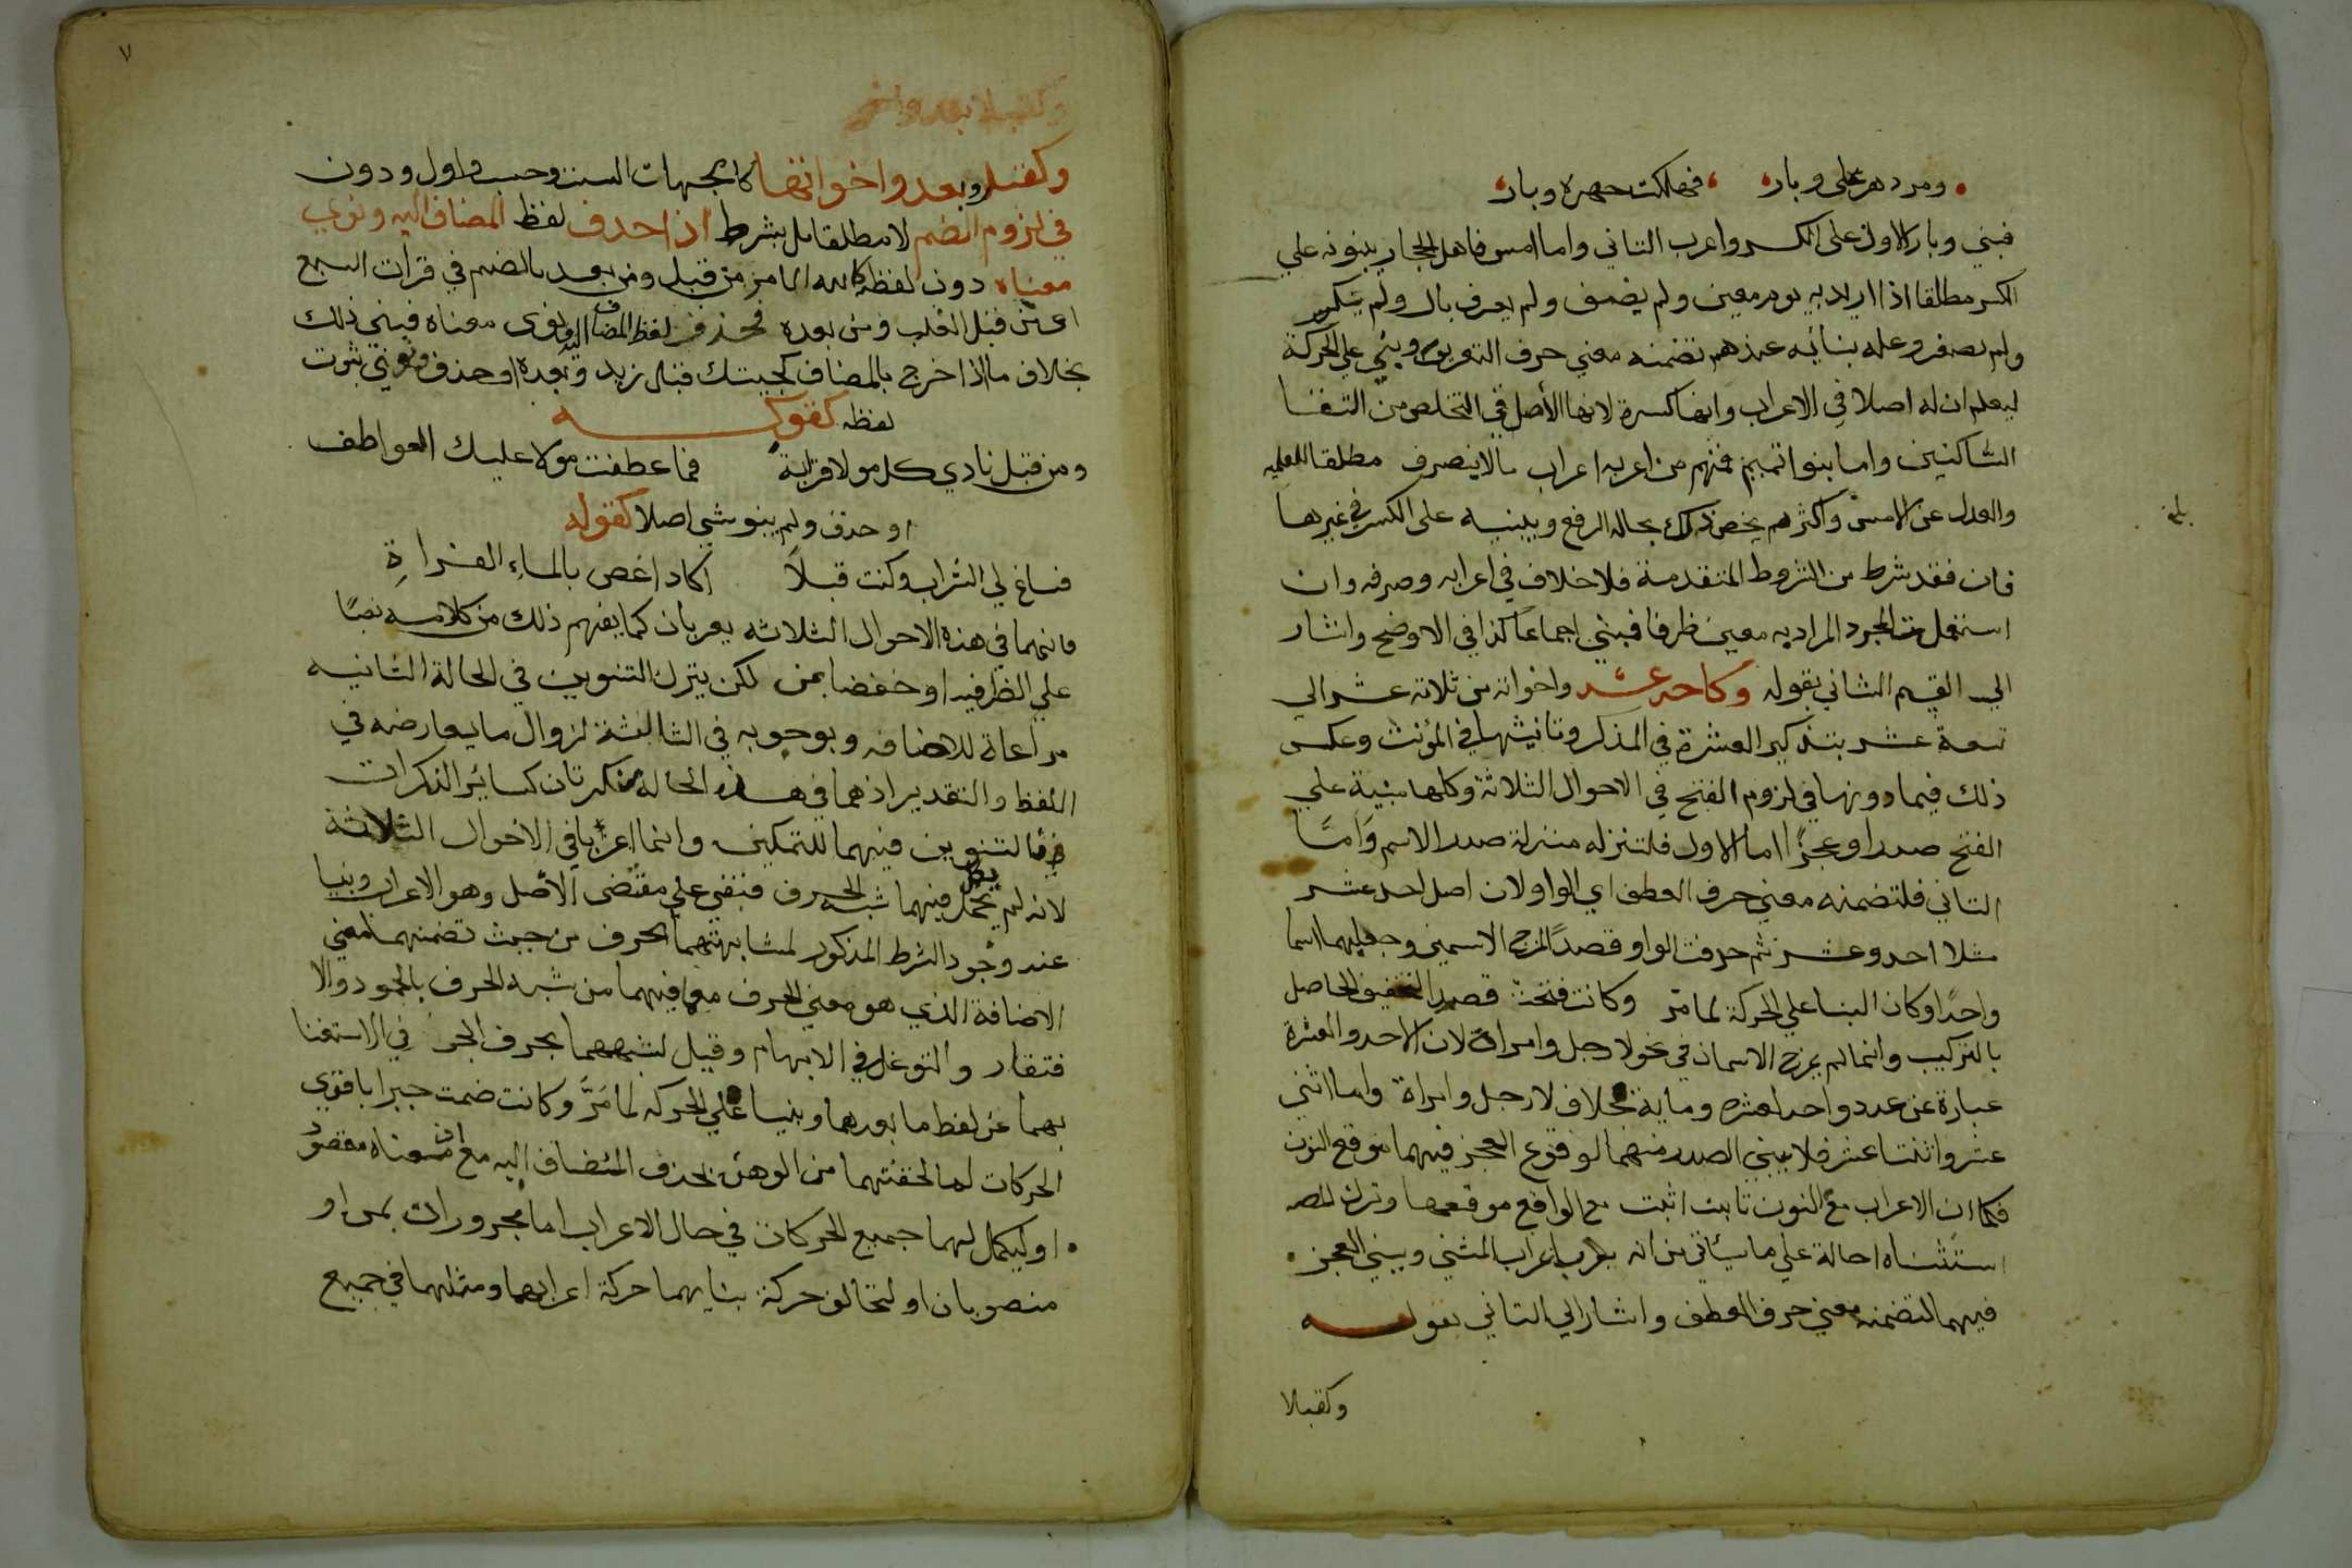 ومر دهر على وبار فهلكت جهرة وبار
فبني وبار الاول على الكسر واعرب الثاني واما امس فاهل الحجاز يبنونه علي
الكسر مطلقا اذا اريد به يوم معين ولم يضف ولم يعرف بال ولم يتكسر
ولم يصغر وعلة بنائه عندهم تضمنه معني حرف التعريف وبني علي الحركة
ليعلم ان له اصلا في الاعراب وانها كسرة لانها الأصل في التخلص من التقا
الساكنين واما بنوا تميم فمنهم من اعربه اعراب مالا ينصرف مطلقا للعلميه
والعدل عن الامس واكثرهم يخص ذلك بحالة الرفع ويبنيه على الكسر في غيرها
بلغ
فان فقد شرط من الشروط المتقدمة فلا خلاف في اعرابه وصرفه وان
استعمل المجرد المراد به معين ظرفا فبني اجماعًا كذا في الاوضح واشار
الي القسم الثاني بقوله وكاحد عشر واخواته من ثلاثة عشر الي
تسعة عشر بتذكير العشرة في المذكر وتانيثها في المؤنث وعكس
ذلك فيما دونها في لزوم الفتح في الاحوال الثلاثة وكلها مبنية علي
الفتح صدرا وعجزًا اما الاول فلتنزله منزلة صدر الاسم وَامَّا
الثاني فلتضمنه معني حرف العطف اي الواو لان اصل احد عشر
مثلا احد وعشر ثم حذفت الواو قصدًا لمزج الاسمين وجعلهما اسما
واحدًا وكان البنا علي الحركة لما مرّ وكانت فتحة قصد التخفيف الحاصل
بالتركيب وانما لم يمزج الاسمان في نحو لا رجل وامراة لان الاحد والعشرة
عبارة عن عدد واحد لعشره وماية بخلاف لا رجل وامراة واما اثني
عشر واثنتا عشر فلا يبني الصدر منهما لوقوع العجز فيهما موقع النون
فكما ان الاعراب مع النون ثابت اثبت مع الواقع موقعها وترك المصه
استثناه احالة علي ما سيأتي من انه يعرب اعراب المثني ويبني العجز
فيهما لتضمنه معني حرف العطف واشار الي الثاني بقوله
وكقبلا
٧
وكقبل وبعد واخواتهما كالجهات الست وحسب واول ودون
في لزوم الضم لا مطلقا بل بشرط اذا حذف لفظ المضاف اليه ونوي
معناه دون لفظه كلله الامر من قبل ومن بعد بالضم في قرات السبع
اي من قبل الغلب ومن بعده فحذف لفظ المضاف اليه ونوى معناه فبني ذلك
بخلاف ما اذا خرج بالمضاف كجيتك قبل زيد وبعده او حذف ونوي ثبوت
لفظه كقوله
ومن قبل نادي كل مولا قرابة فما عطفت مولا عليك العواطف
او حذف ولم ينو شي اصلا كقوله
فساغ لي الشراب وكنت قبلاً اكاد اغص بالماءِ الفراةِ
فانهما في هذه الاحوال الثلاثه يعربان كما يفهم ذلك من كلامه نصبًا
علي الظرفيه او خفضا بمن لكن يترك التنوين في الحالة الثانيه
مراعاة للاضافه وبوجوبه في الثالثة لزوال ما يعارضه في
اللفظ والتقدير اذ هما في هذه الحالة نكرتان كسائر النكرات
فالتنوين فيهما للتمكين وانما اعربا في الاحوال الثلاثة
لانه لم يكمل فيهما شبه الحرف فبقي علي مقتضى الأصل وهو الاعراب وبنيا
عند وجود الشرط المذكور لمشابهتهما الحرف من حيث تضمنهما معني
الاضافة الذي هو معني الحرف مع ما فيهما من شبه الحرف بالجمود والا
فتقار والتوغل في الابهام وقيل لشبههما بحرف الجر في الاستغنا
بهما عن لفظ ما بعدهما وبنيا علي الحركه لما مَرَّ وكانت ضمة جبرا باقوي
الحركات لما لحقتهما من الوهن بحذف المضاف اليه مع ان معناه مقصود
او ليكمل لهما جميع الحركات في حال الاعراب اما مجروران بمن او
منصوبان او لتخالف حركة بنايهما حركة اعرابهما ومثلهما في جميع